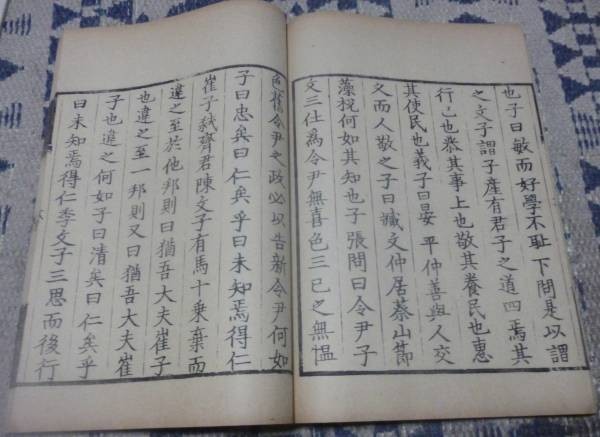 也子曰敏而好學不耻下問是以謂
之文子謂子產有君子之道四焉其
行己也恭其事上也敬其養民也惠
其使民也義子曰晏平仲善與人交
久而人敬之子曰臧文仲居蔡山節
藻梲何如其知也子張問曰令尹子
文三仕爲令尹無喜色三已之無慍
色舊令尹之政必以告新令尹何如
子曰忠矣曰仁矣乎曰未知焉得仁
崔子弑齊君陳文子有馬十乘棄而
違之至於他邦則曰猶吾大夫崔子
也違之至一邦則又曰猶吾大夫崔
子也違之何如子曰清矣曰仁矣乎
曰未知焉得仁季文子三思而後行